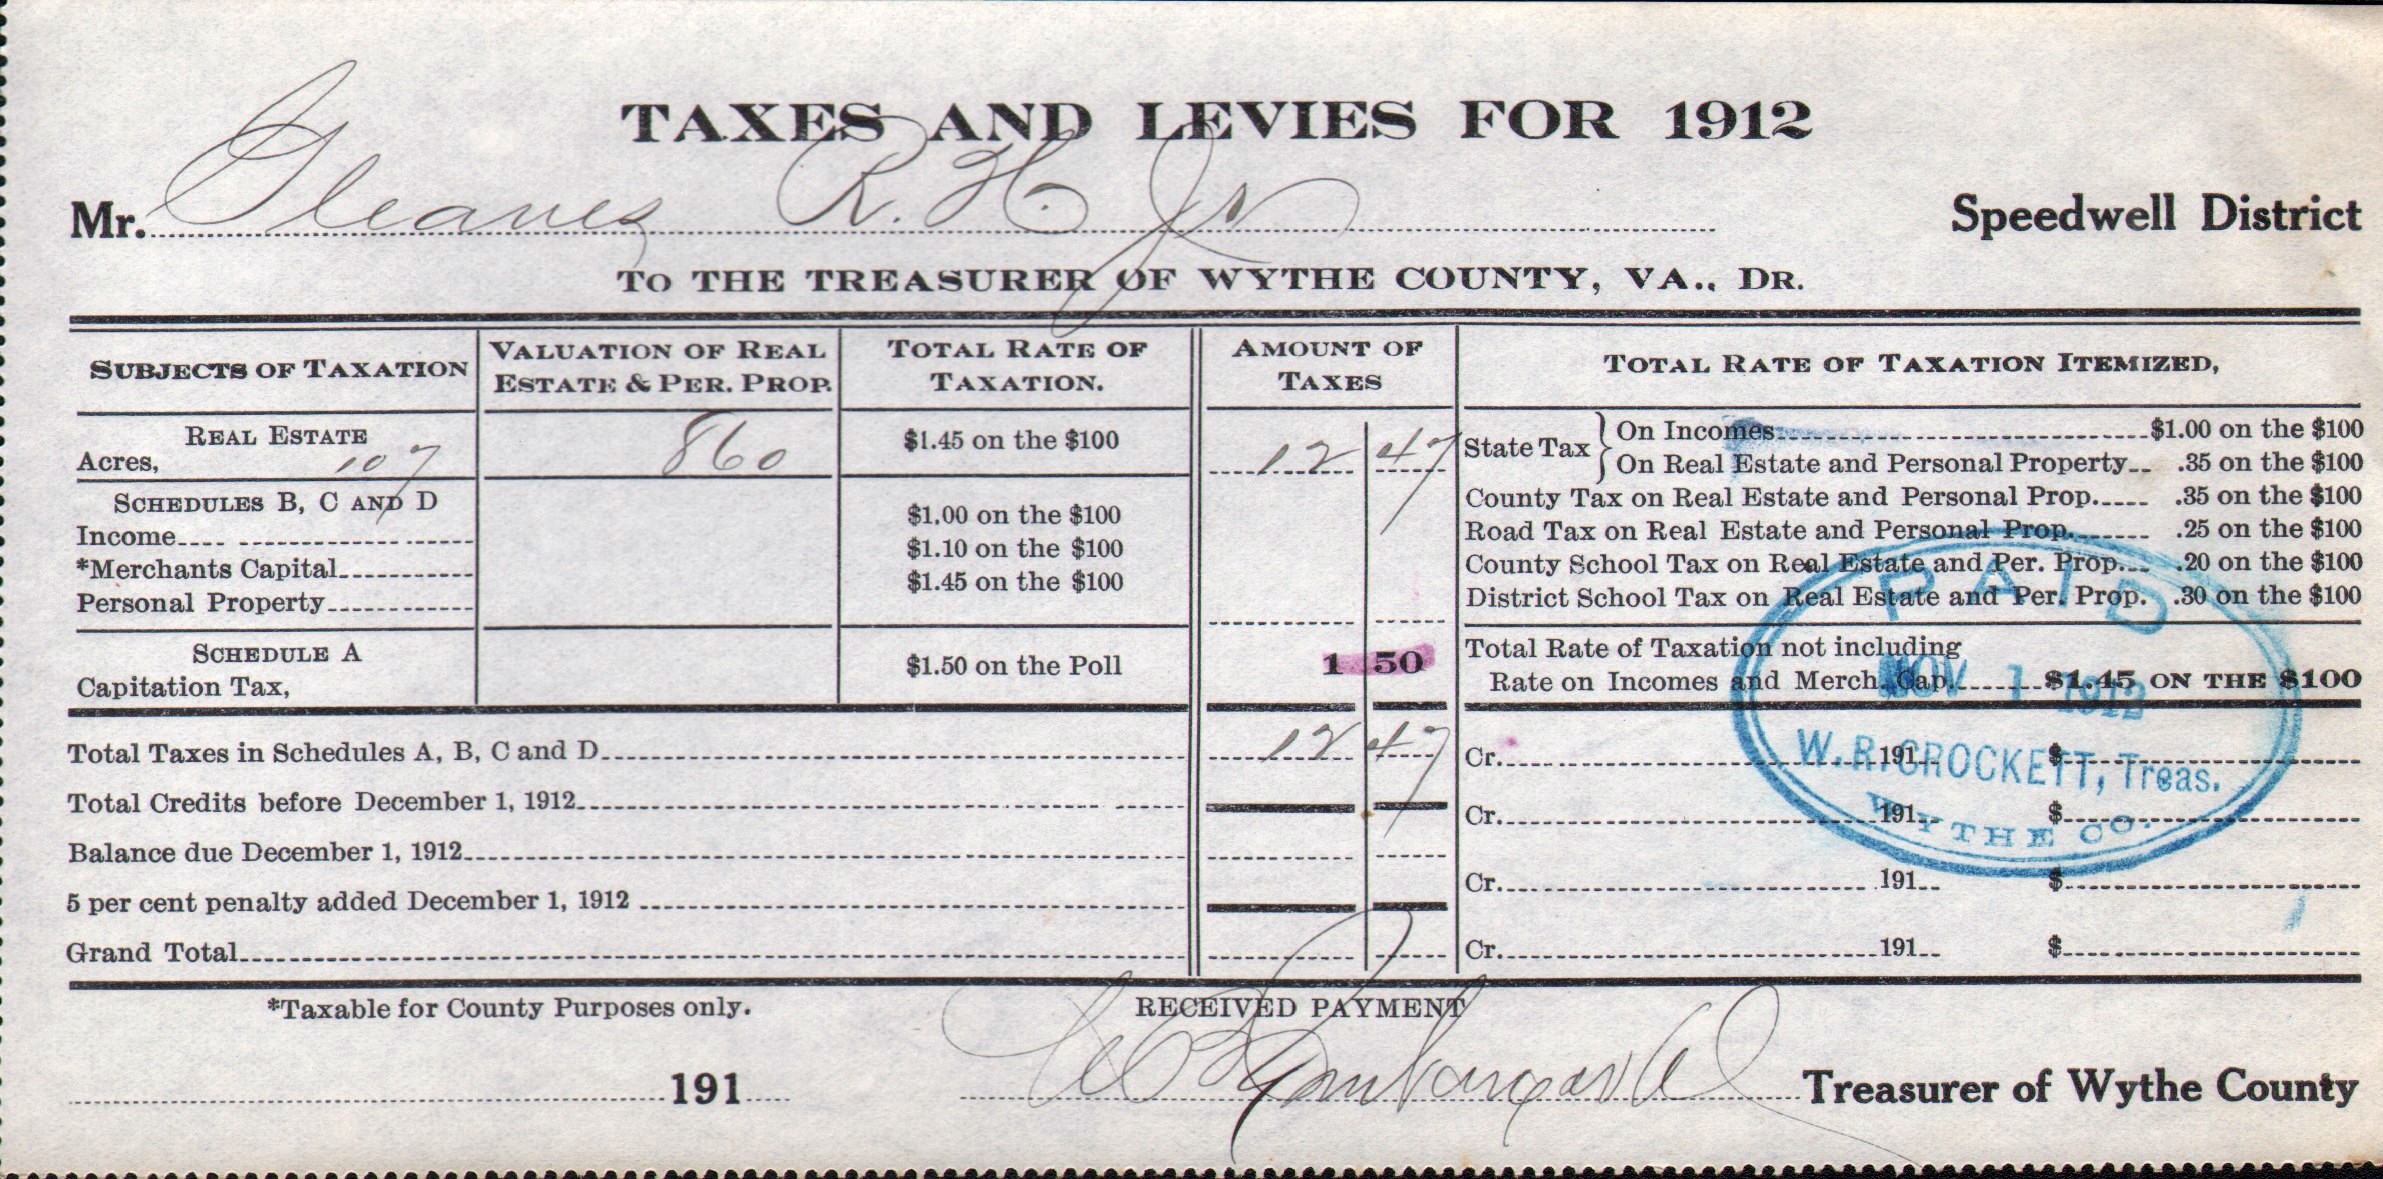 TAXES AND LEVIES FOR 1912
Mr. Gleaves R. H. Jr Speedwell District
To THE TREASURER OF WYTHE COUNTY, VA., DR.
SUBJECTS OF TAXATION
VALUATION OF REAL
ESTATE & PER. PROP.
TOTAL RATE OF
TAXATION.
AMOUNT OF
TAXES
TOTAL RATE OF TAXATION ITEMIZED,
REAL ESTATE
Acres, 107 860 $1.45 on the $100 12 47
SCHEDULES B, C AND D
Income $1.00 on the $100
*Merchants Capital $1.10 on the $100
Personal Property $1.45 on the $100
SCHEDULE A
Capitation Tax, $1.50 on the Poll 1 50
State Tax } On Incomes $1.00 on the $100
On Real Estate and Personal Property .35 on the $100
County Tax on Real Estate and Personal Prop. .35 on the $100
Road Tax on Real Estate and Personal Prop. .25 on the $100
County School Tax on Real Estate and Per. Prop. .20 on the $100
District School Tax on Real Estate and Per. Prop. .30 on the $100
Total Rate of Taxation not including
Rate on Incomes and Merch. Cap. $1.45 ON THE $100
PAID
NOV 1 1912
W. R. CROCKETT, Treas.
WYTHE CO.
Total Taxes in Schedules A, B, C and D 12 47
Total Credits before December 1, 1912
Balance due December 1, 1912
5 per cent penalty added December 1, 1912
Grand Total
Cr. 191 $
Cr. 191 $
Cr. 191 $
Cr. 191 $
*Taxable for County Purposes only.
RECEIVED PAYMENT
191 Treasurer of Wythe County